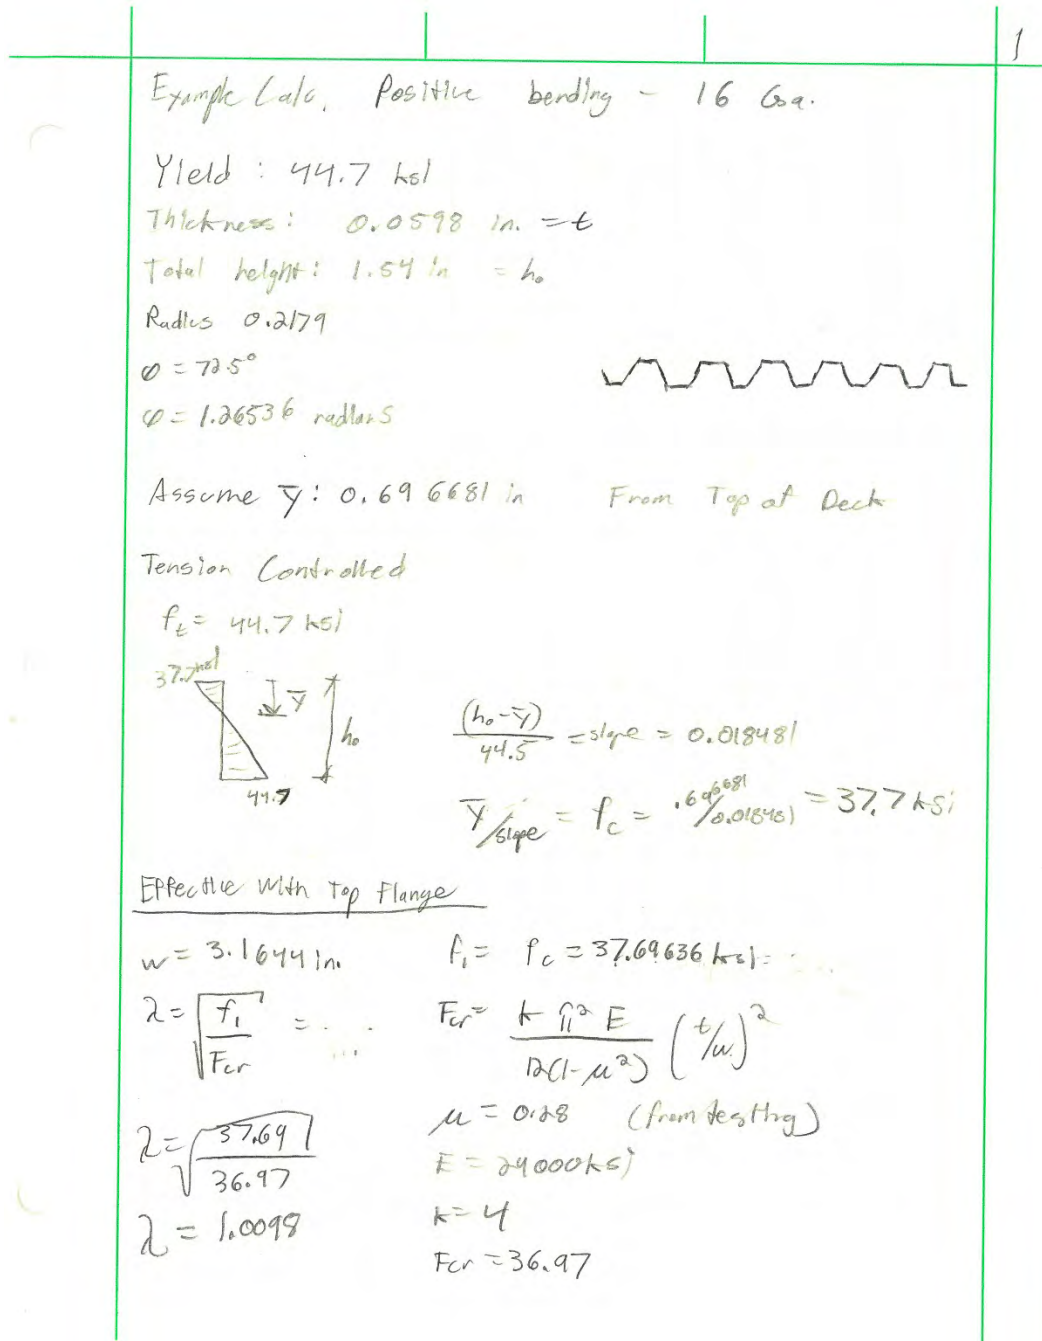 1
Example Calc. Positive bending - 16 Ga.
Yield : 44.7 ksi
Thickness: 0.0598 in. = t
Total height: 1.54 in = h₀
Radius 0.2179
φ = 72.5°
φ = 1.26536 radians
Assume ȳ: 0.696681 in From Top of Deck
Tension Controlled
f_t = 44.7 ksi
37.7 ksi
ȳ
h₀
44.7
(h₀-ȳ)/44.5 = slope = 0.018481
ȳ/slope = f_c = .696681/0.018481 = 37.7 ksi
Effective width Top Flange
w = 3.1644 in. f₁ = f_c = 37.69636 ksi
λ = √(f₁/Fcr) = .... Fcr = k π² E / 12(1-μ²) (t/w)²
μ = 0.28 (from testing)
λ = √(37.69/36.97) E = 29000 ksi
λ = 1.0098 k = 4
Fcr = 36.97